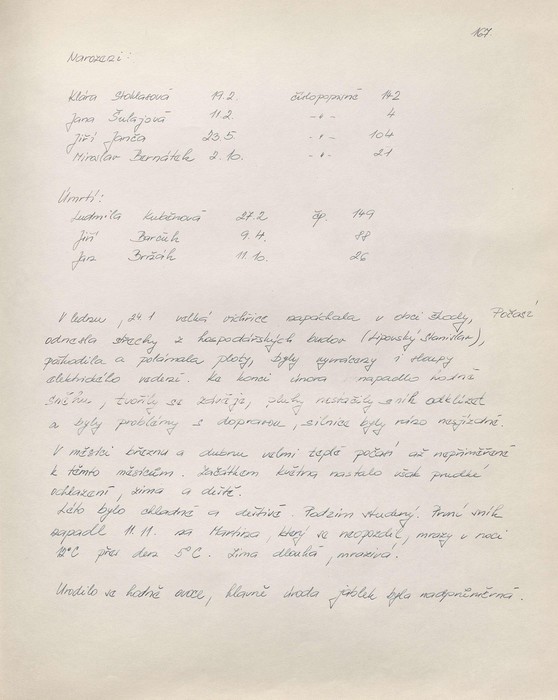 167.
Narození:
Klára Stoklasová 19.2. číslo popisné 142
Jana Šulajová 11.2. -"- 4
Jiří Janča 23.5. -"- 104
Miroslav Bernátek 2.10. -"- 21
Úmrtí:
Ludmila Kuběnová 27.2 čp. 149
Jiří Barčuk 9.4. 88
Jan Bržák 11.10. 26
V lednu, 24.1 velká vichřice napáchala v obci škody, Počasí
odnesla střechy z hospodářských budov (Lipovský Stanislav),
poškodila a polámala ploty, byly vyvráceny i sloupy
elektrického vedení. Ke konci února napadlo hodně
sněhu, tvořily se závěje, pluhy nestačily sníh odklízet
a byly problémy s dopravou, silnice byly ráno nesjízdné.
V měsíci březnu a dubnu velmi teplé počasí až nepřiměřené
k těmto měsícům. Začátkem května nastalo však prudké
ochlazení, zima a deště.
Léto bylo chladné a deštivé. Podzim studený. První sníh
napadl 11.11. na Martina, který se neopozdil, mrazy v noci
12°C přes den 5°C. Zima dlouhá, mrazivá.
Urodilo se hodně ovoce, hlavně úroda jablek byla nadprůměrná.